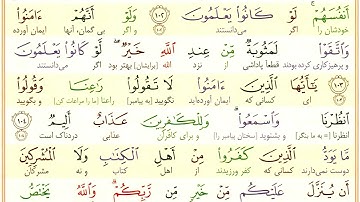 أَنفُسَهُمْ ۚ لَوْ كَانُوا۟ يَعْلَمُونَ ١٠٢ وَلَوْ أَنَّهُمْ ءَامَنُوا۟
خودشان را اگر می‌دانستند و اگر بی گمان، آنها ایمان آورده
لَمَثُوبَةٌ مِّنْ عِندِ ٱللَّهِ خَيْرٌ ۖ لَّوْ كَانُوا۟ يَعْلَمُونَ
و پرهیزکاری کرده بودند قطعا پاداشی از نزد الله بهتر بود اگر می‌دانستند
١٠٣ يَٰٓأَيُّهَا ٱلَّذِينَ ءَامَنُوا۟ لَا تَقُولُوا۟ رَٰعِنَا وَقُولُوا۟
ای کسانی که ایمان آورده‌اید نگویید راعنا و بگویید
ٱنظُرْنَا وَٱسْمَعُوا۟ ۗ وَلِلْكَٰفِرِينَ عَذَابٌ أَلِيمٌ ١٠٤
انظرنا و بشنوید و برای کافران عذابی دردناک است
مَّا يَوَدُّ ٱلَّذِينَ كَفَرُوا۟ مِنْ أَهْلِ ٱلْكِتَٰبِ وَلَا ٱلْمُشْرِكِينَ
دوست نمی‌دارند کسانی که کفر ورزیدند از اهل کتاب و نه مشرکان
أَن يُنَزَّلَ عَلَيْكُم مِّنْ خَيْرٍ مِّن رَّبِّكُمْ ۗ وَٱللَّهُ يَخْتَصُّ